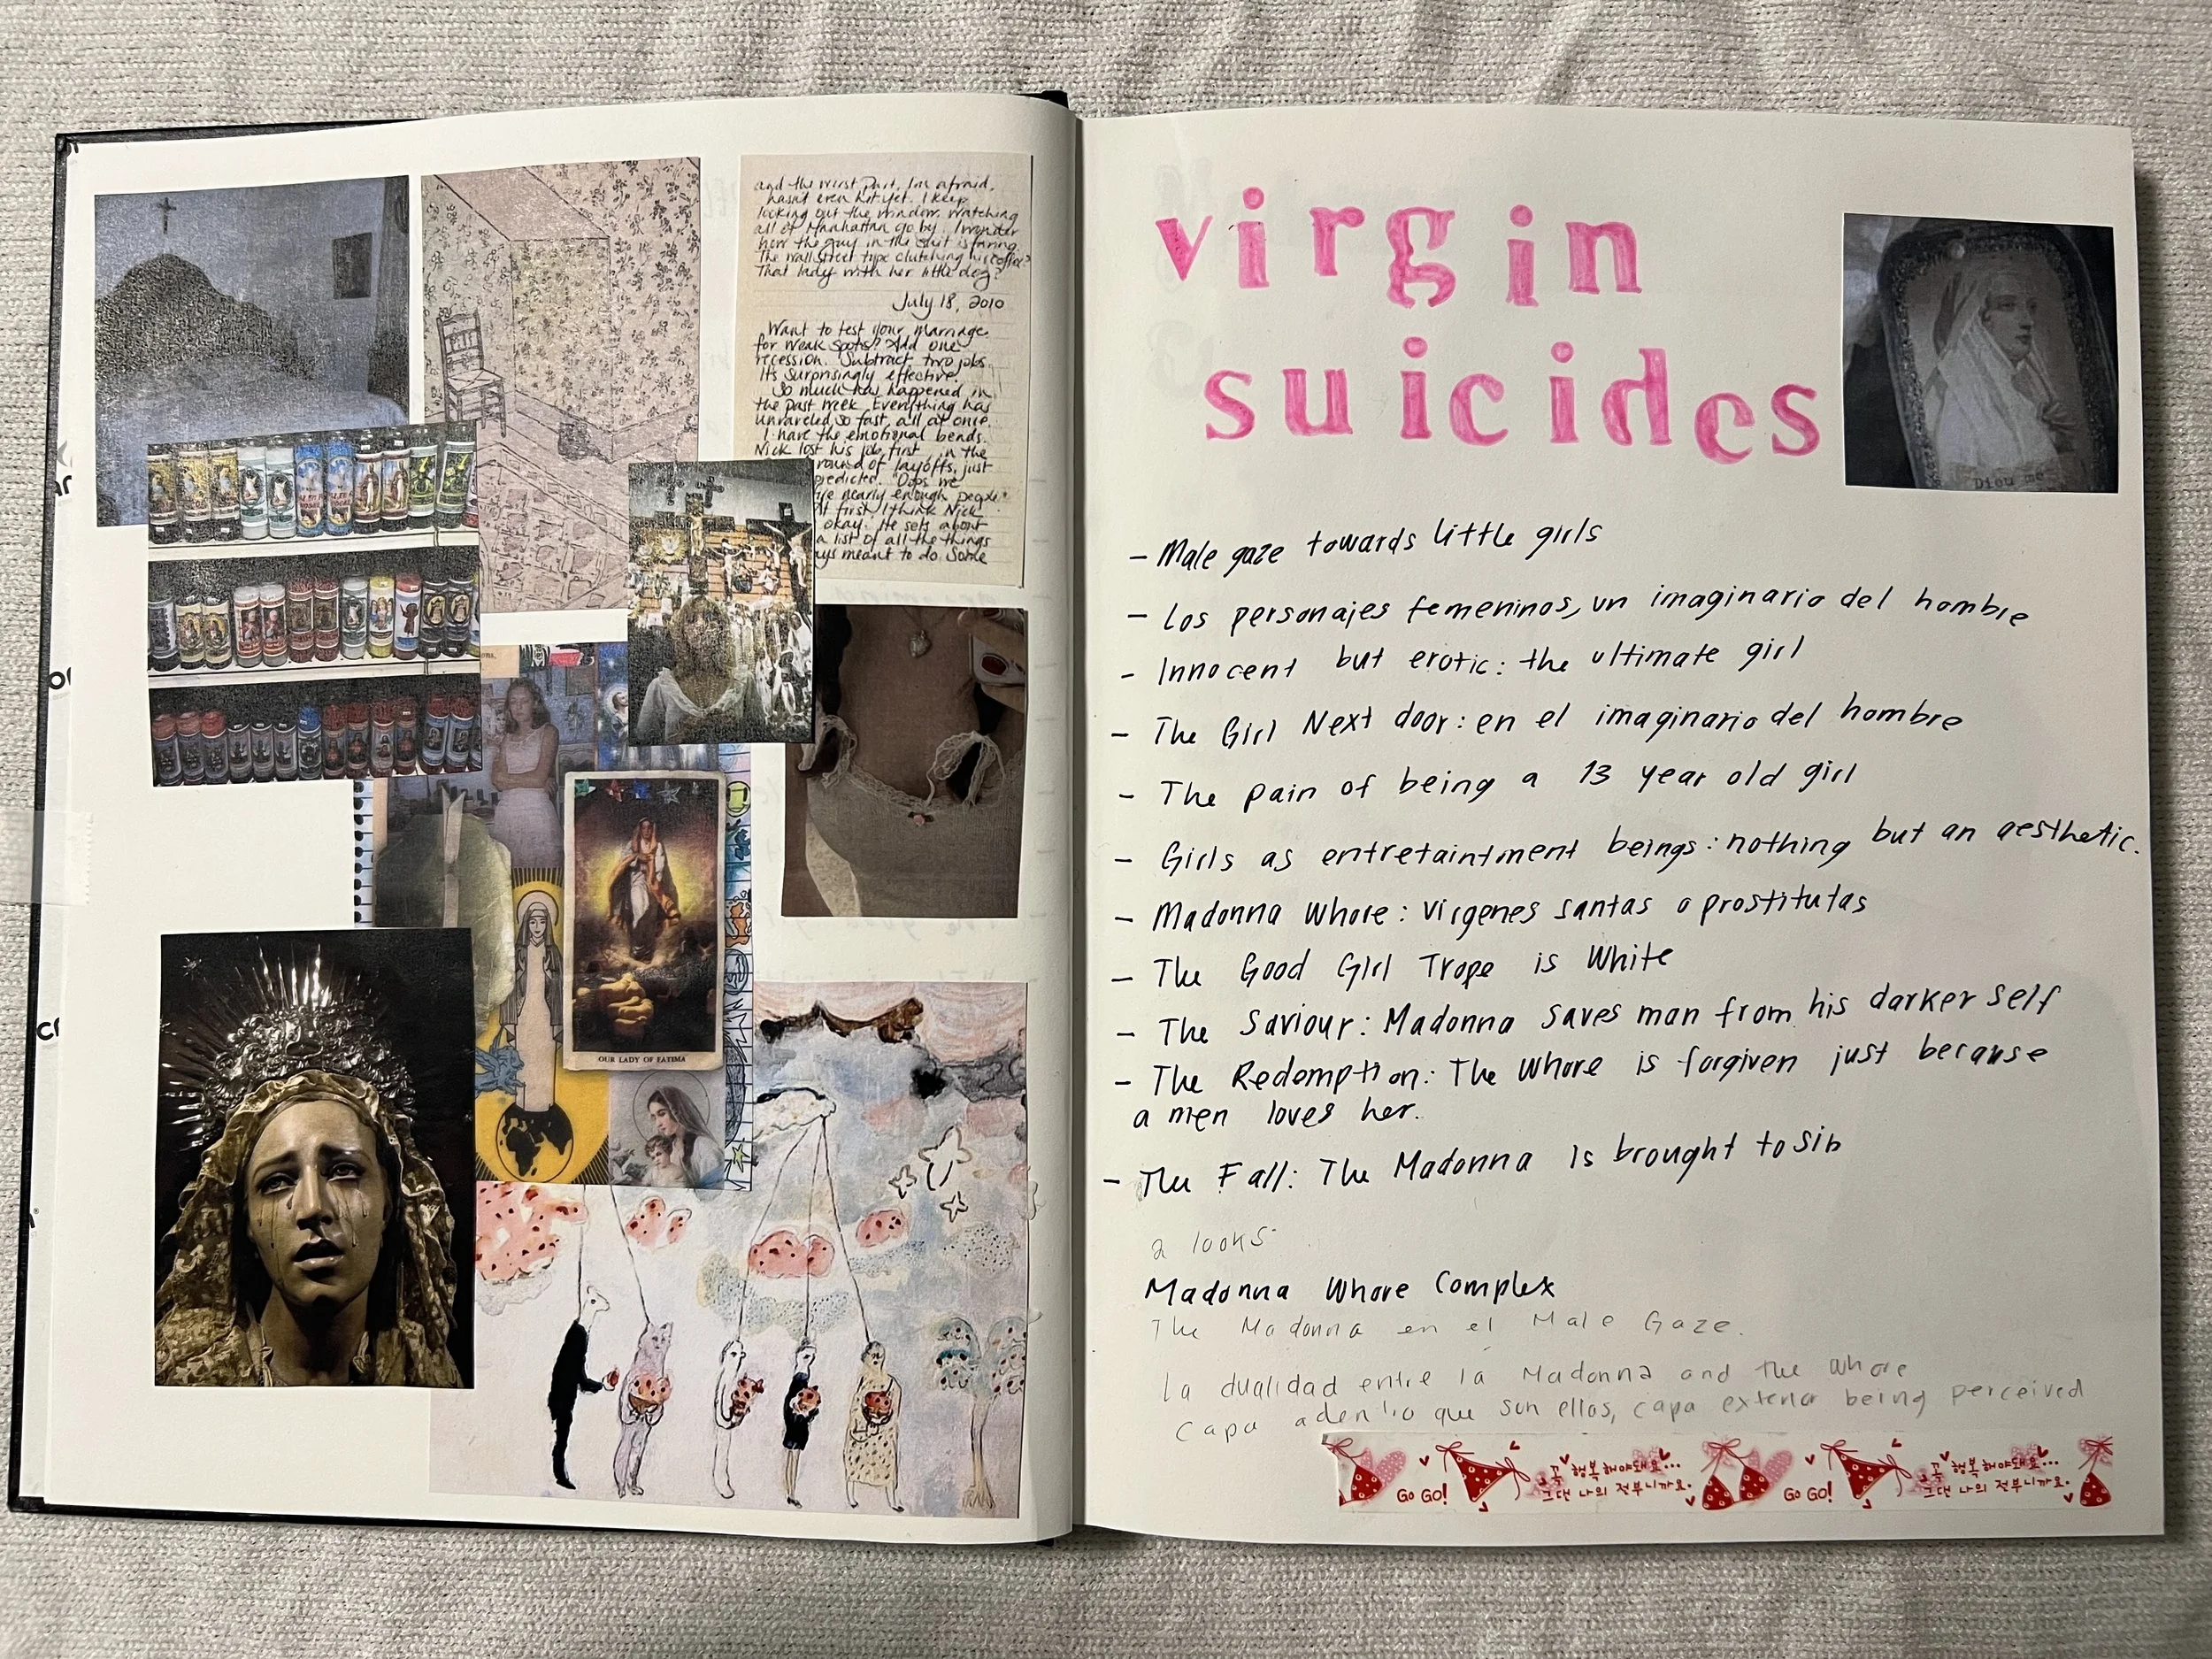 and the worst part, I'm afraid,
hasn't even hit yet. I keep
looking out the window, watching
all of Manhattan go by. I wonder
how the guy in the suit is faring.
The wall street type clutching his coffee?
That lady with her little dog?
July 18, 2010
Want to test your marriage
for weak spots? Add one
recession. Subtract two jobs.
It's surprisingly effective.
So much has happened in
the past week. Everything has
unraveled so fast, all at once.
I have the emotional bends.
Nick lost his job first, in the
round of layoffs, just
predicted. "Oops we
nearly enough people
At first I think Nick
okay. He sets about
a list of all the things
ys meant to do. Some
OUR LADY OF FATIMA
virgin
suicides
Diou me
- Male gaze towards little girls
- Los personajes femeninos, un imaginario del hombre
- Innocent but erotic: the ultimate girl
- The Girl Next door: en el imaginario del hombre
- The pain of being a 13 year old girl
- Girls as entretaintment beings: nothing but an aesthetic.
- Madonna Whore: vírgenes santas o prostitutas
- The Good Girl Trope is White
- The Saviour: Madonna saves man from his darker self
- The Redemption: The Whore is forgiven just because
a men loves her.
- The Fall: The Madonna is brought to sin
2 looks
Madonna Whore Complex
The Madonna en el Male Gaze.
La dualidad entre la Madonna and the whore
Capa adentro que son ellas, capa exterior being perceived
GO GO! 꼭 행복해야돼요... GO GO! 꼭 행복해야돼요...
그댄 나의 전부니까요. 그댄 나의 전부니까요.